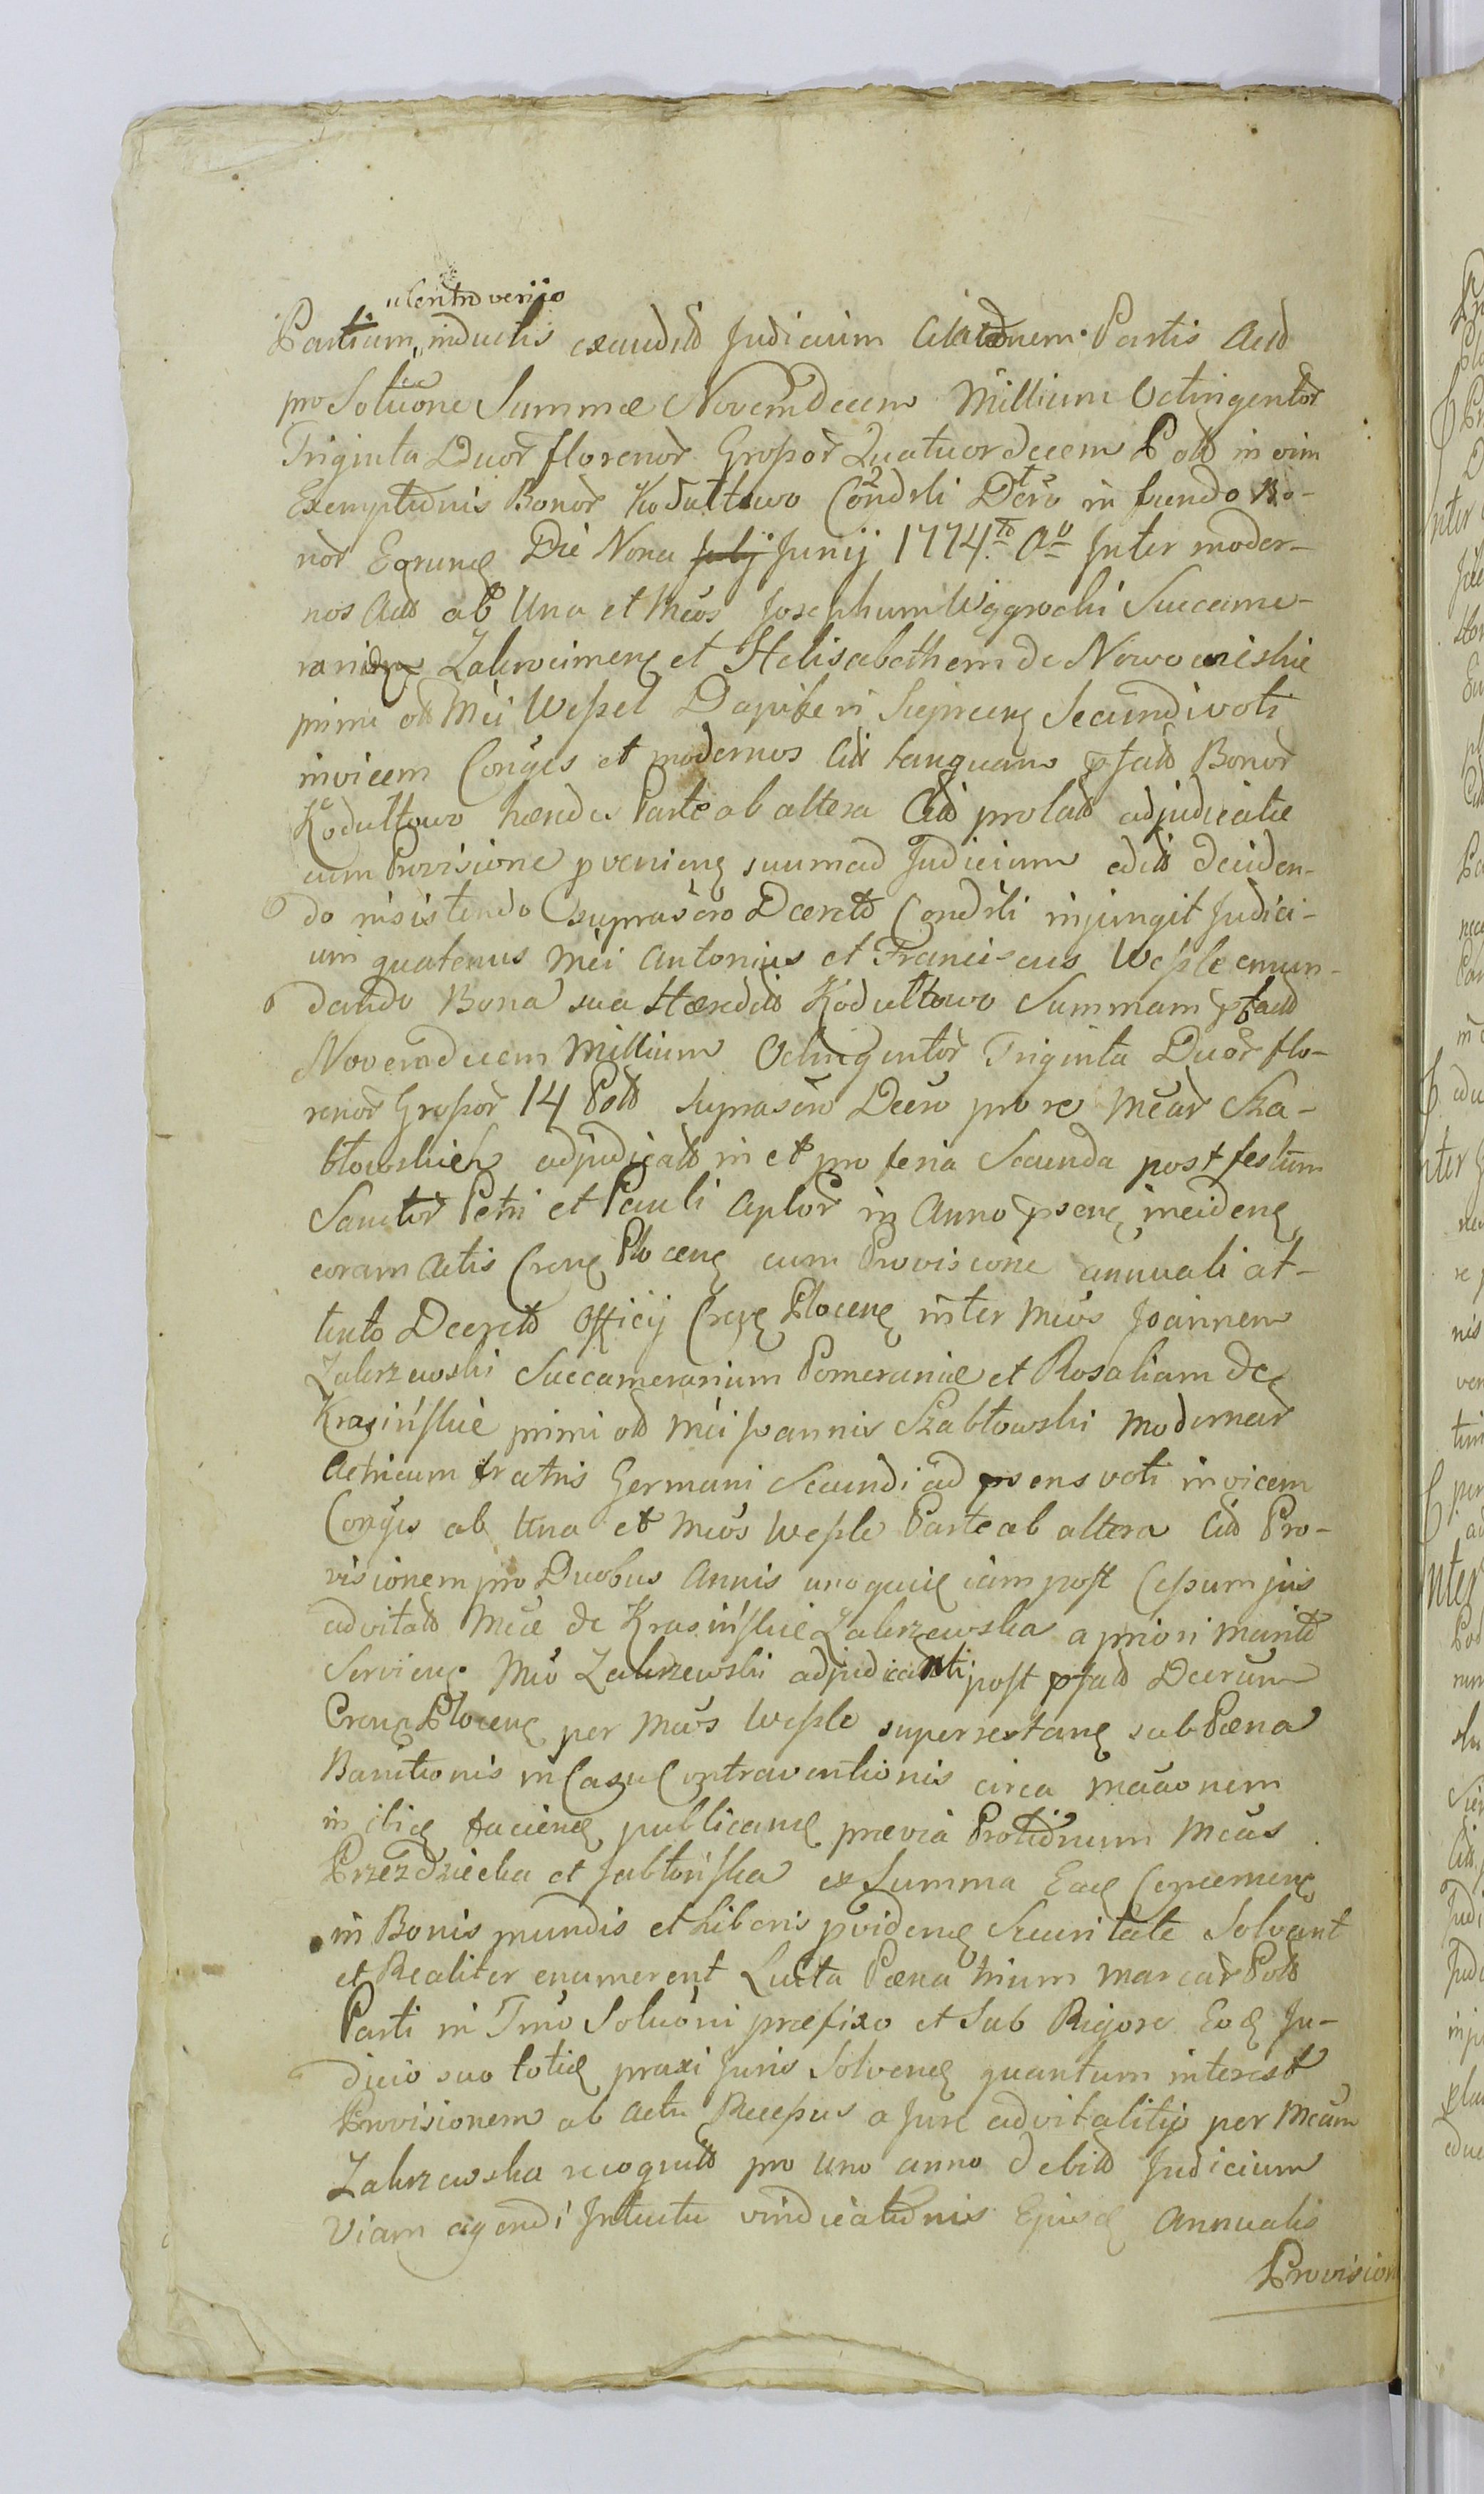 Controversijs
Partium inductis exaudito Judicium Citationem Partis Acto
pro Solutione Summæ Novemdecem Millium Octingentor
Triginta Duor florenor Großor Quatuordecem Polo in vim
Exemptionis Bonor Kodułtowo Condsli Dcto in fundo Bo-
nor Egrunę Die Nona July Junij 1774to Ao Inter moder-
nos Acto ab Una et Mcos Josephum Wggrocki Succame-
rarium Zakrocimenę et Helisabethem de Nowowieiskie
primi olo Mci Weßel Dapiferi Secundi voti
invicem Conges et modernos Cito tanquam pfato Bonor
Kodułtowo hæredes Parte ab altera Cito prolato adjudicatæ
cum Provisione pvenienę suum ad Judicium edito deciden-
do insistendo suprascro Decreto Condsli injungit Judici-
um quatenus Mci Antonius et Franciscus Weßle emun-
dando Bona sua Hæredito Kodułtowo Summam pfato
Novemdecem Millium Octingentor Triginta Duor flo-
renor Großor 14 Polo suprascro Decro pro re Mcar Sza-
błowskich adjudicato in et pro feria Secunda post festum
Sanctor Petri et Pauli Aplor in Anno psenę incidenę
coram Actis Crenę Plocenę cum Provisione annuali at-
tento Decreto Officij Crenę Plocenę inter Mcos Joannem
Zakrzewski Succamerarium Pomeraniæ et Rosaliam de
Krasińskie primi olo Mci Joannis Szabłowski modernar
Actricum fratris Germani Secundi ad psens voti invicem
Conges ab Una et Mcos Weßle Parte ab altera Cito Pro-
visionem pro Duobus Annis unoquoę iam post Ceßum jus
advitalo Mcæ de Krasińskie Zakrzewska a priori marito
Servienę Mco Zakrzewski adjudicanti post pfato Decrum
Crenę Plocenę per Mcos Weßle superrestanę sub Pæna
Banitionis in Casu Contraventionis circa
in ibię facienę publicanę prævia Mcas
Przezdziecka et Jabłońska ex Summa Eaę Concernenę
in Bonis mundis et Liberis pvidenę Securitate Solvant
et Realiter enumerent Luita Pæna trium marcar Polo
Parti in Tmo Solutioni præfixo et Sub Rigore Eoę Ju-
dicio suo totię praxi Juris Solvenę quantum interest
Provisionem ab Actu Receßus a Jure advitalitio per Mcam
Zakrzewska recognito pro Uno anno debito Judicium
Viam agendi Intuitu vindicationis Ejusę Annualis
Provision